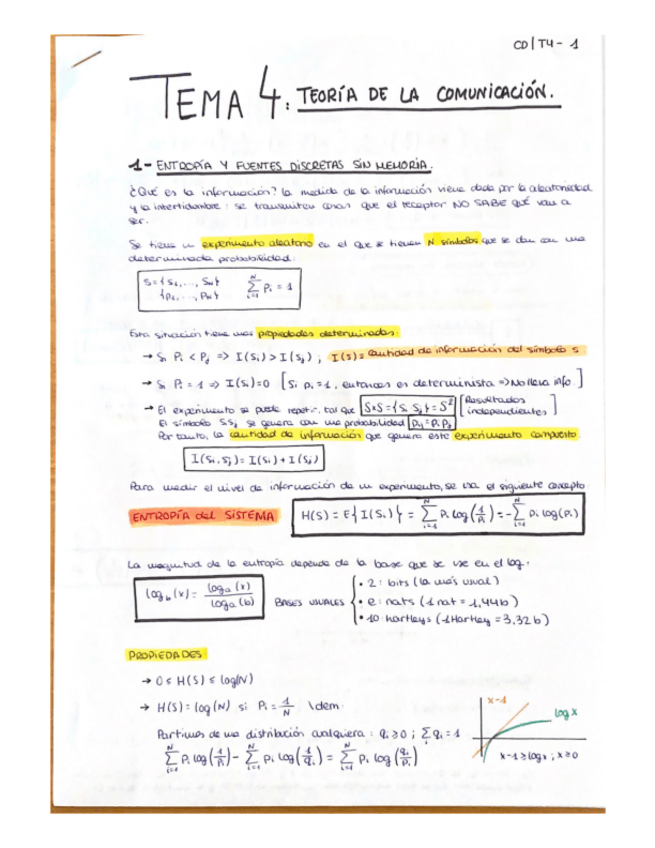 CD | T4 - 1
TEMA 4: TEORÍA DE LA COMUNICACIÓN.
1- ENTROPÍA Y FUENTES DISCRETAS SIN MEMORIA.
¿Qué es la información? La medida de la información viene dada por la aleatoriedad
y la intertidumbre: se transmiten cosas que el receptor NO SABE QUÉ van a
ser.
Se tiene un experimento aleatorio en el que se tienen N símbolos que se dan con una
determinada probabilidad:
S = {S₁, ..., Sₙ}
{p₁, ..., pₙ} ∑ᵢ₌₁ᴺ pᵢ = 1
Esta situación tiene unas propiedades determinadas:
→ Si Pᵢ < Pⱼ => I(Sᵢ) > I(Sⱼ) ; I(s) = Cantidad de información del símbolo s
→ Si Pᵢ = 1 => I(Sᵢ) = 0 [Si pᵢ = 1, entonces es determinista => No lleva info.]
→ El experimento se puede repetir, tal que SxS = {Sᵢ Sⱼ} = S² [Resultados independientes]
El símbolo SᵢSⱼ se genera con una probabilidad Pᵢⱼ = Pᵢ Pⱼ
Por tanto, la cantidad de información que genera este experimento compuesto:
I(Sᵢ, Sⱼ) = I(Sᵢ) + I(Sⱼ)
Para medir el nivel de información de un experimento, se usa el siguiente concepto:
ENTROPÍA del SISTEMA H(S) = E{I(Sᵢ)} = ∑ᵢ₌₁ᴺ Pᵢ log(1/Pᵢ) = -∑ᵢ₌₁ᴺ pᵢ log(pᵢ)
La magnitud de la entropía depende de la base que se use en el log:
log_b(x) = log_a(x) / log_a(b) BASES USUALES { • 2: bits (la más usual)
• e: nats (1 nat = 1,44 b)
• 10: hartleys (1 Hartley = 3,32 b)
PROPIEDADES:
→ 0 ≤ H(S) ≤ log(N)
→ H(S) = log(N) si Pᵢ = 1/N \dem:
Partimos de una distribución cualquiera: qᵢ ≥ 0 ; ∑ᵢ qᵢ = 1
∑ᵢ₌₁ᴺ Pᵢ log(1/Pᵢ) - ∑ᵢ₌₁ᴺ Pᵢ log(1/qᵢ) = ∑ᵢ₌₁ᴺ Pᵢ log(qᵢ/Pᵢ)
x-1
log x
x-1 ≥ log x ; x ≥ 0